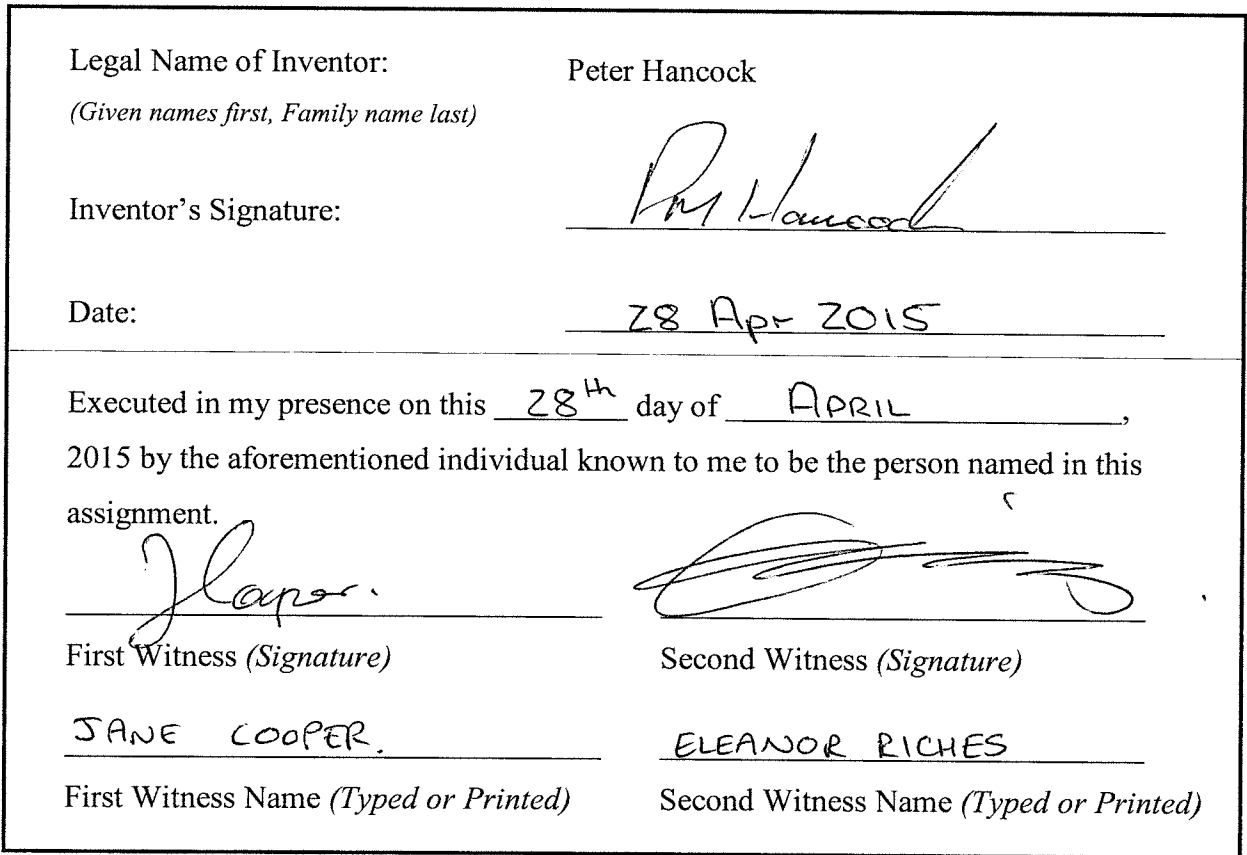 Legal Name of Inventor: Peter Hancock
(Given names first, Family name last)
Inventor's Signature: PM Hancock
Date: 28 Apr 2015
Executed in my presence on this 28th day of APRIL,
2015 by the aforementioned individual known to me to be the person named in this
assignment.
J Cooper.
First Witness (Signature) Second Witness (Signature)
JANE COOPER. ELEANOR RICHES
First Witness Name (Typed or Printed) Second Witness Name (Typed or Printed)